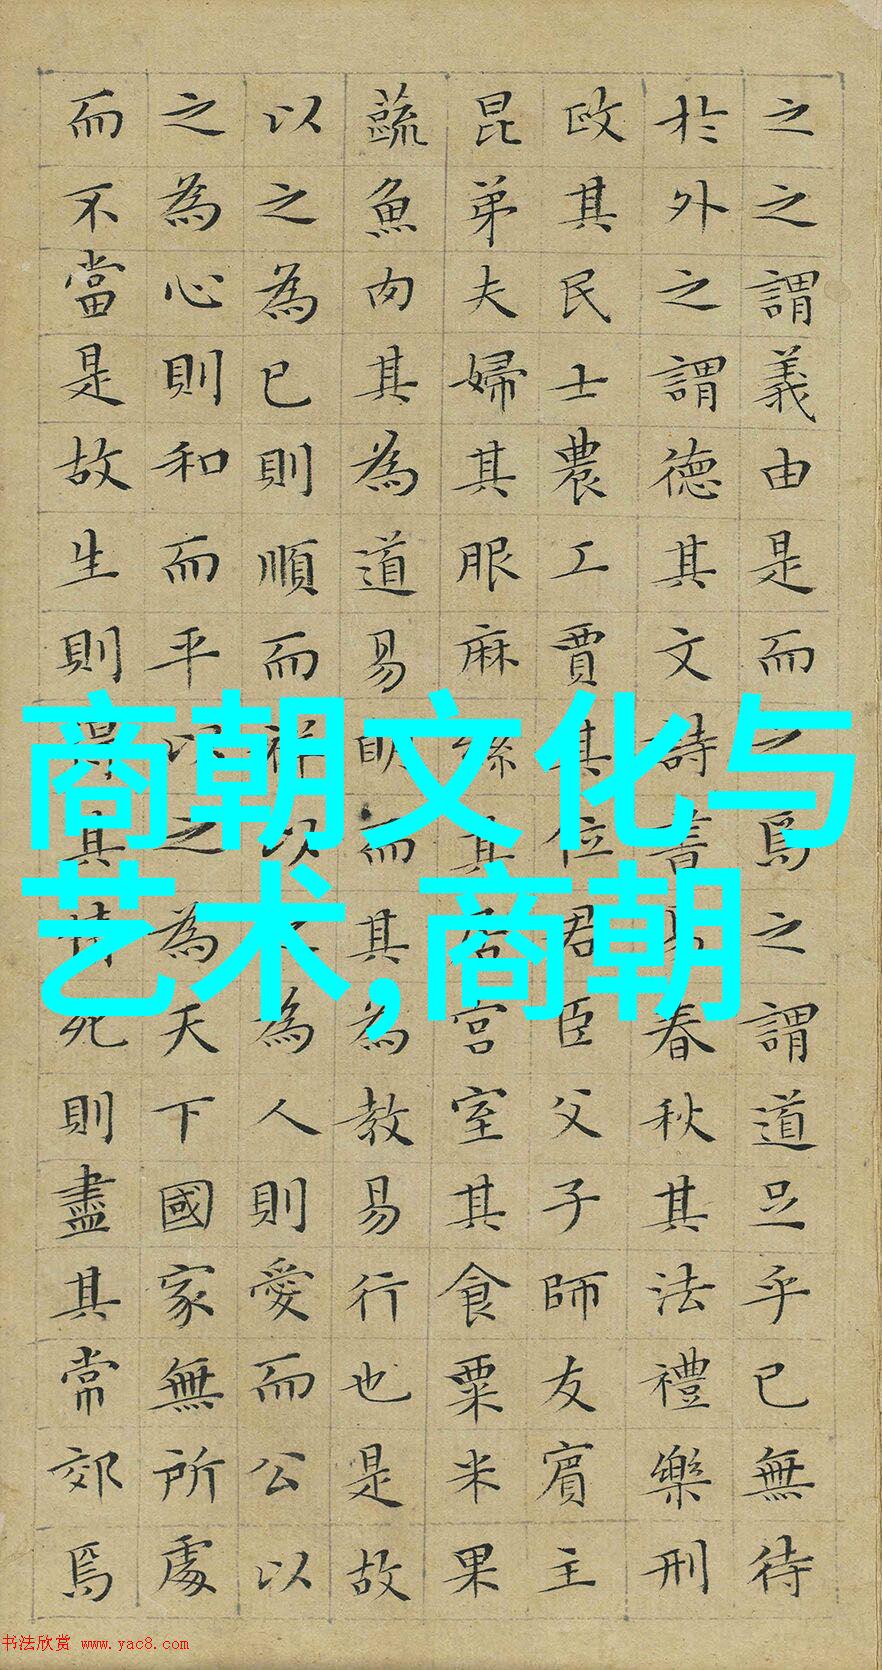 之之謂義由是而之焉之謂道足乎已無待
於外之謂德其文詩書易春秋其法禮樂刑
政其民士農工賈其位君臣父子師友賓主
昆弟夫婦其服麻絲其居宮室其食粟米果
蔬魚肉其為道易明而其為教易行也是故
以之為已則順而祥以之為人則愛而公以
之為心則和而平以之為天下國家無所處
而不當是故生則得其情死則盡其常郊焉
商朝文化与
艺术,商朝
书法欣赏 www.yac8.com